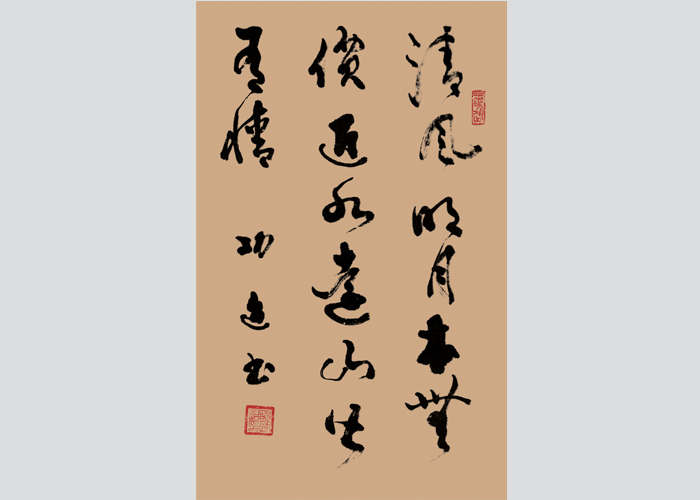 清風明月本無
價近水遠山皆
有情
功 書